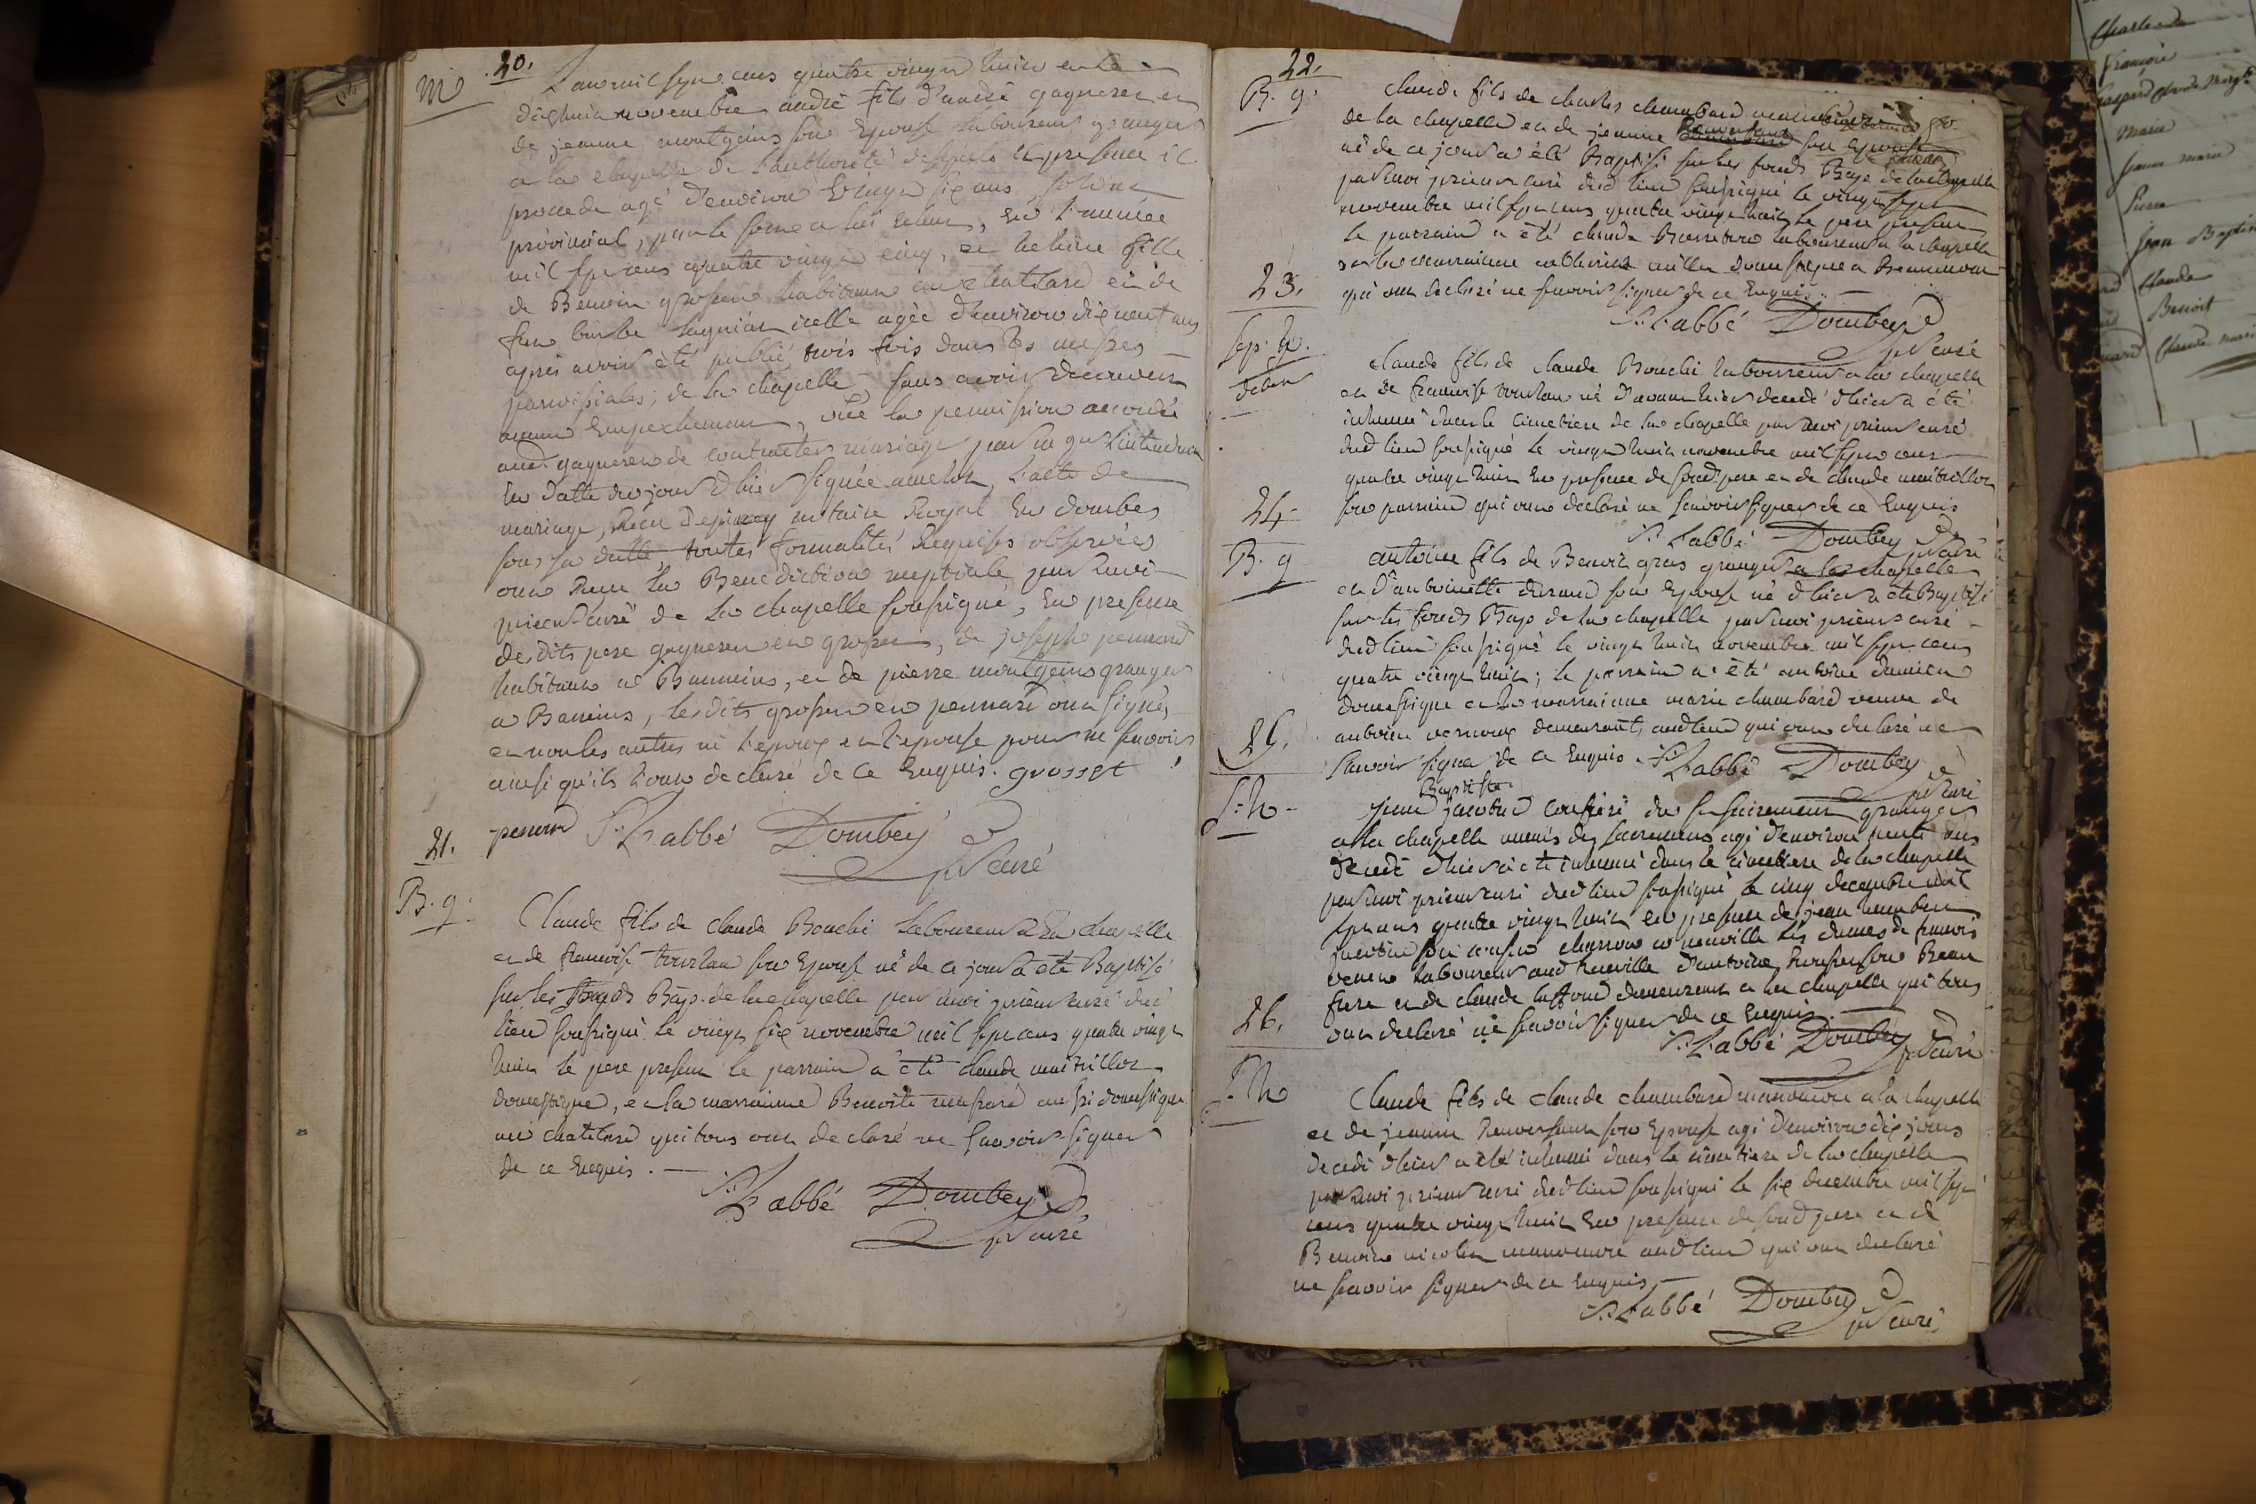 20.
M
L'an mil sept cens quatre vingt huit et le
dixhuit novembre andré fils d'andré gagneren et
de jeanne montgoins son Epouse laboureurs grangers
a la chapelle de l'authorité desquels Et presence il
procede agé d'environ vingt six ans, soldat
provincial, par le sort a lui echu, En l'année
mil sept cens quatre vingt cinq, et helene fille
de Benoit grosset habitant au chatelard et de
icelle agée d'environ dix neuf ans
après avoir été publié trois fois dans les messes
paroissiales; de la chapelle, sans avoir decouvert
aucun Empechement, vüe la permission accordée
aud. gagneren de contracter mariage par
En datte du jour d'hier signée L'acte de
mariage, Reçu notaire Royal En dombes
sous sa datte toutes formalités Requises observées
ont Reçu la Benediction nuptiale par moi
prieur curé de la chapelle soussigné, En presence
desdits pere gagneren et grosset, de joseph pennard
habitant a Banneins, et de pierre montgoins granger
a Banneins, lesdits grosset et pennard ont signés
et non les autres ni l'epoux et l'epouse pour ne sçavoir
ainsi qu'ils l'ont declaré de ce Enquis. grosset
penard L'abbé Dombey
pr curé
21.
B. g.
Claude fils de claude Bouchi laboureur a La chapelle
et de francoise tourtau son Epouse né de ce jour a été Baptisé
sur les fonds Bap. de la chapelle par moi prieur curé dud
lieu soussigné le vingt six novembre mil sept cens quatre vingt
huit le pere present le parrain a été claude
domestique, et la marrainne Benoite aussi domestique
au chatelard qui tous ont declaré ne sçavoir signer
de ce Enquis.
L'abbé Dombey
pr curé
22.
B. g.
Claude fils de charles chambard
de la chapelle et de jeanne son Epouse
né de ce jour a été Baptisé sur les fonds Bap. de la chapelle
par moi prieur curé dud lieu soussigné le vingt sept
novembre mil sept cens quatre vingt huit le pere present
le parrain a été claude laboureur a la chapelle
et la marrainne catherine domestique a
qui ont declaré ne sçavoir signer de ce Enquis.
L'abbé Dombey
pr curé
23.
Sep. g.
Claude fils de claude Bouchi laboureur a la chapelle
et de francoise tourtau né d'avant hier decedé d'hier a été
inhumé dans le cimetiere de la chapelle par moi prieur curé
dud lieu soussigné le vingt huit novembre mil sept cens
quatre vingt huit En presence de sond pere et de claude
son parrain qui ont declaré ne sçavoir signer de ce Enquis
L'abbé Dombey
pr curé
24.
B. g
antoine fils de Benoit gras granger a la chapelle
et d'antoinette durand son Epouse né d'hier a été Baptisé
sur les fonds Bap de la chapelle par moi prieur curé
dud lieu soussigné le vingt huit novembre mil sept cens
quatre vingt huit; le parrain a été antoine damien
domestique et la marrainne marie chambard veuve de
antoine demeurant aud lieu qui ont declaré ne
sçavoir signer de ce Enquis. L'abbé Dombey
pr curé
25.
S. h
Baptiste
jean confreré du St sacrement granger
a la chapelle munis des sacremens agé d'environ trente ans
decedé d'hier a été inhumé dans le cimetiere de la chapelle
par moi prieur curé dud lieu soussigné le cinq decembre mil
sept cens quatre vingt huit en presence de jean
a neuville les dames de francois
laboureur aud Neuville d'antoine son Beau
frere et de claude demeurant a la chapelle qui tous
ont declaré ne sçavoir signer de ce Enquis.
L'abbé Dombey
pr curé
26.
S. h
Claude fils de claude chambard manouvre a la chapelle
et de jeanne son Epouse agé d'environ dix jours
decedé d'hier a été inhumé dans le cimetiere de la chapelle
par moi prieur curé dud lieu soussigné le six decembre mil sept
cens quatre vingt huit En presence de sond pere et de
Benoit nicolas manouvre aud lieu qui ont declaré
ne sçavoir signer de ce Enquis
L'abbé Dombey
pr curé
Charles
françois
marie
jeanne marie
Pierre
jean Baptiste
Claude
Benoit
Claude marie